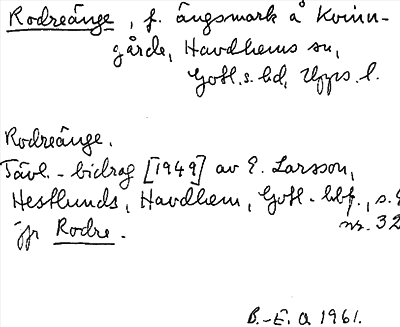 Rodreänge, f. ängsmark å Kvinn-
gårde, Havdhems sn,
Gotl. s. hd, Upps. l.
Rodreänge.
Tävl.-bidrag [1949] av E. Larsson,
Hestlunds, Havdhem, Gotl.
jfr Rodre. nr. 32
B.-E. O 1961.